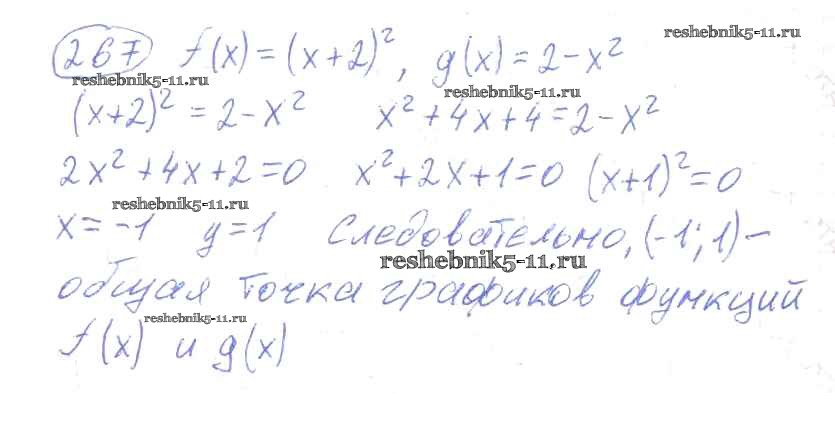 267 f(x)=(x+2)², g(x)=2-x² reshebnik5-11.ru
reshebnik5-11.ru reshebnik5-11.ru
(x+2)²=2-x² x²+4x+4=2-x²
2x²+4x+2=0 x²+2x+1=0 (x+1)²=0
reshebnik5-11.ru
x=-1 y=1 Следовательно, (-1;1)-
reshebnik5-11.ru
общая точка графиков функций
reshebnik5-11.ru
f(x) и g(x)